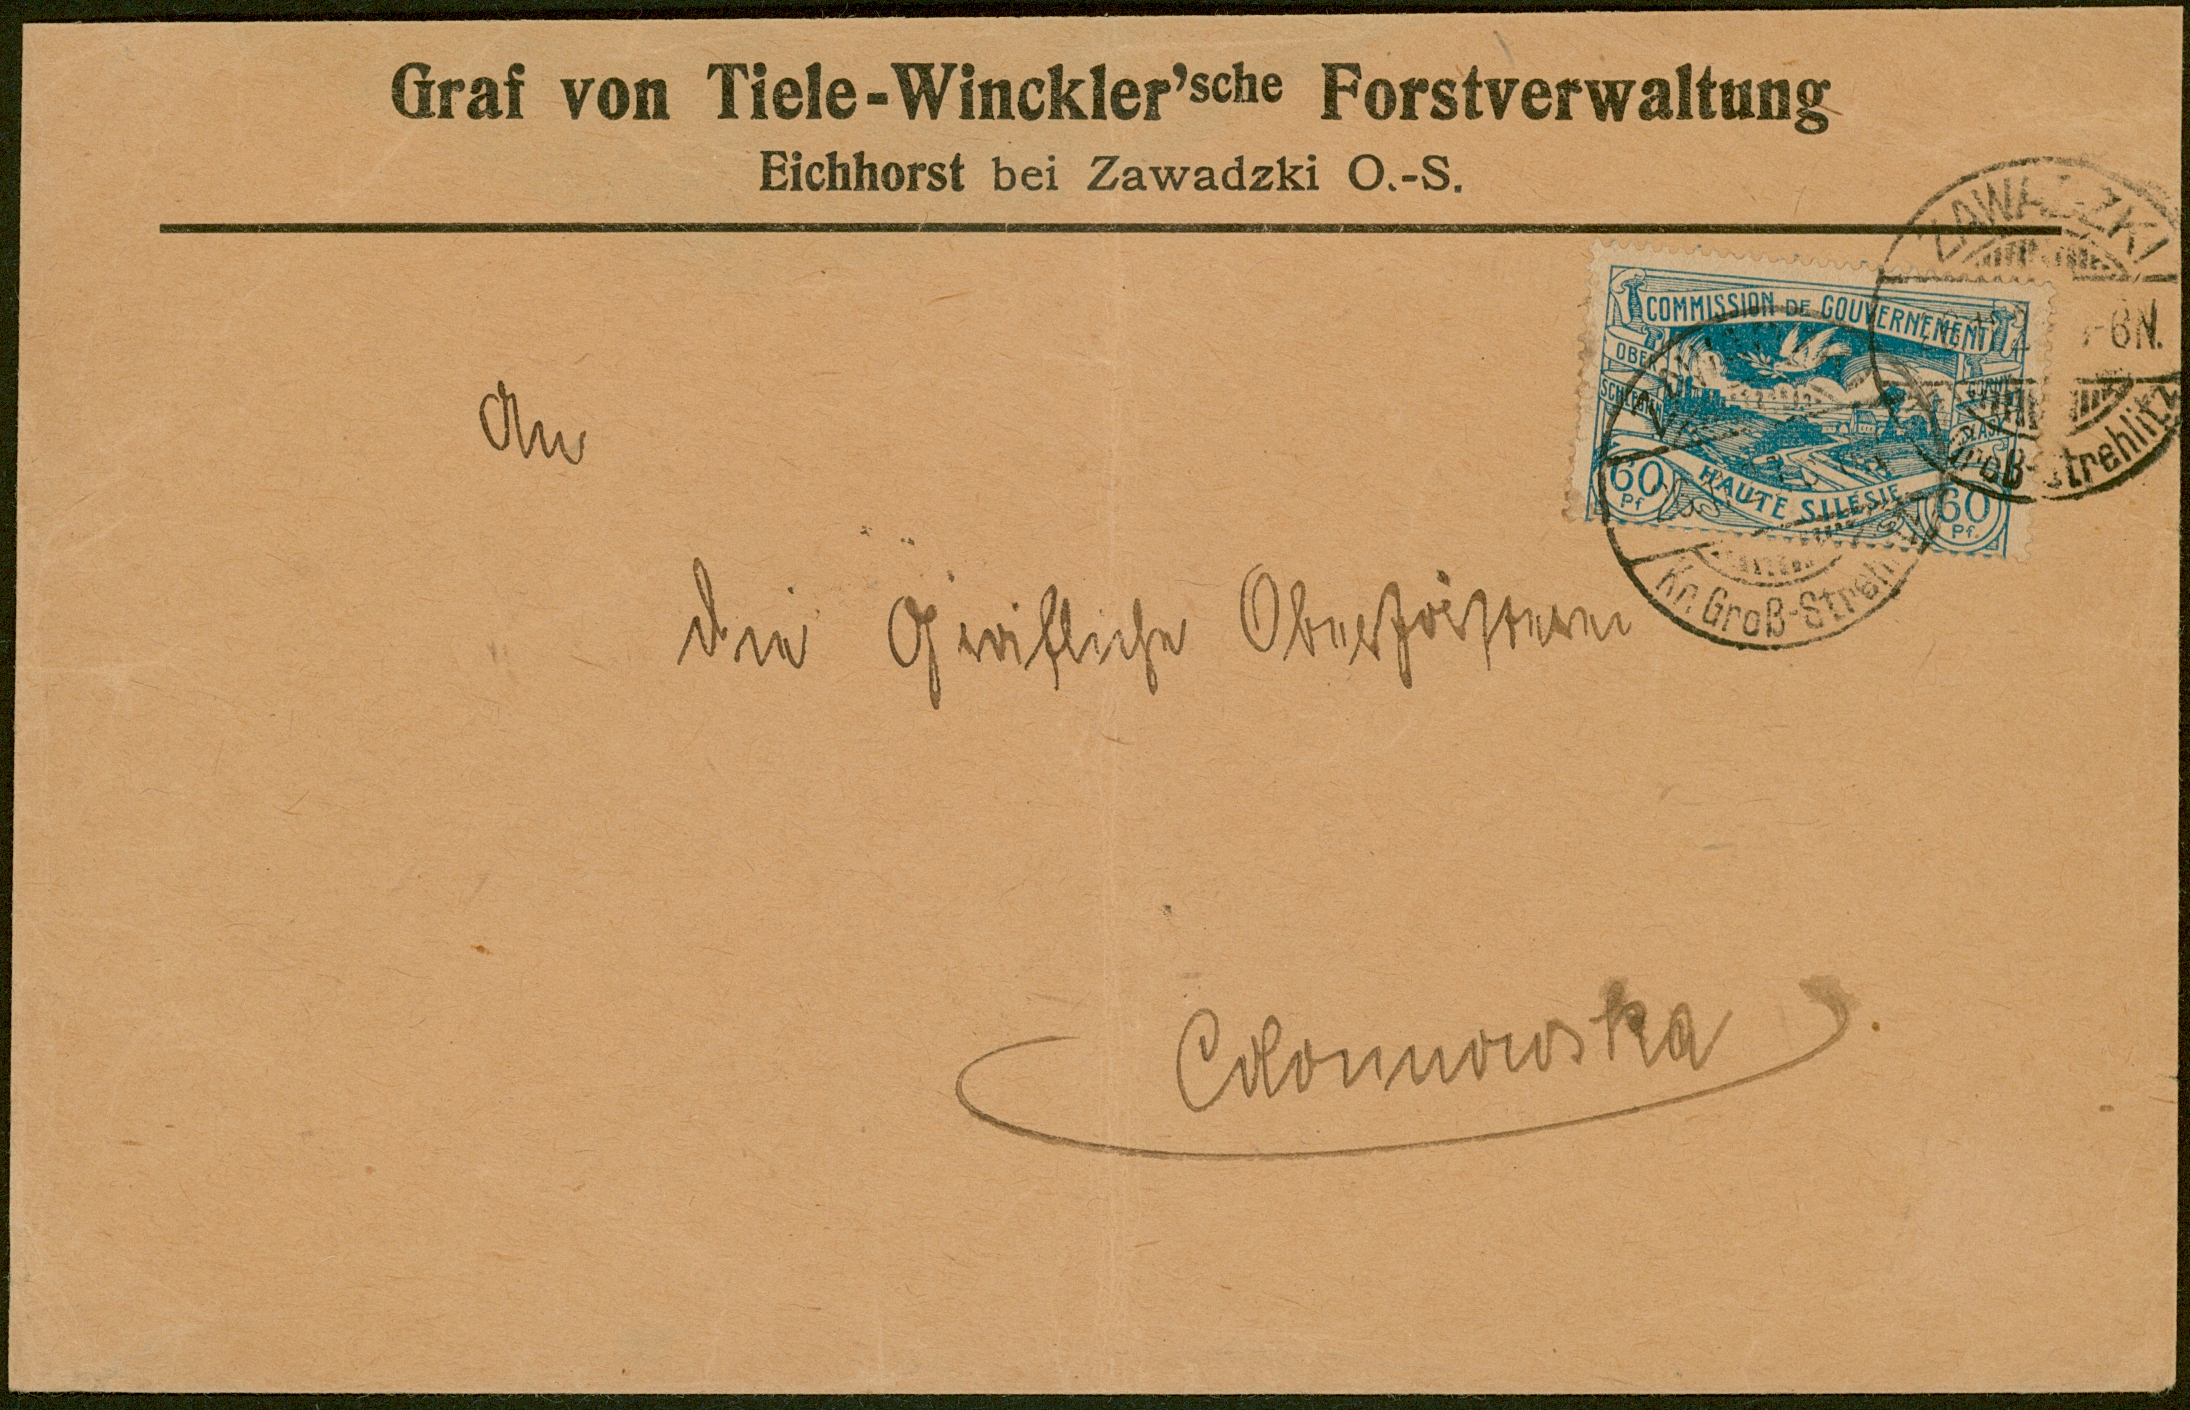 Graf von Tiele-Winckler'sche Forstverwaltung
Eichhorst bei Zawadzki O.-S.
ZAWADZKI
6N.
Groß-Strehlitz
COMMISSION DE GOUVERNEMENT
OBER
SCHLESIEN
GORNY
ŚLĄSK
HAUTE SILÉSIE
60 Pf.
60 Pf.
Kr. Groß-Strehlitz
An
die Gräfliche Oberförsterei
Colonnowska